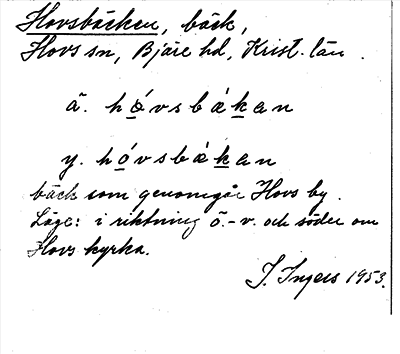 Hovsbäcken, bäck,
Hovs sn, Bjäre hd, Krist. län.
ä. hóvsbàkan
y. hóvsbàkan
bäck som genomgår Hovs by.
Läge: i riktning ö.-v. och söder om
Hovs kyrka.
I. Ingers 1953.